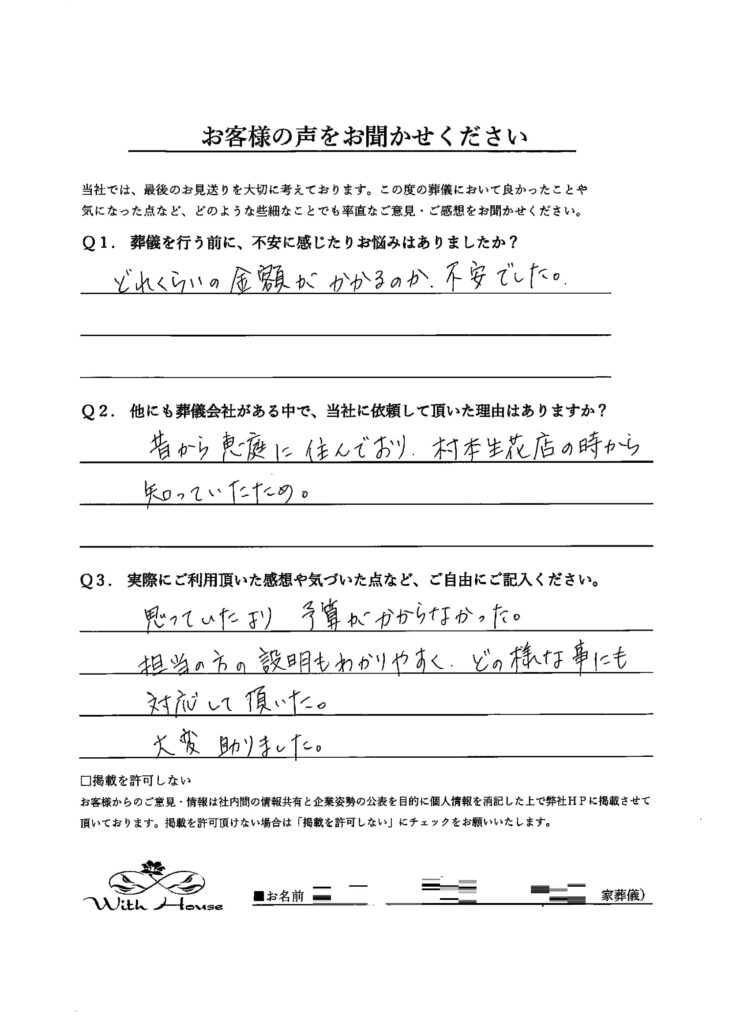 お客様の声をお聞かせください
当社では、最後のお見送りを大切に考えております。この度の葬儀において良かったことや
気になった点など、どのような些細なことでも率直なご意見・ご感想をお聞かせください。
Q1. 葬儀を行う前に、不安に感じたりお悩みはありましたか?
どれくらいの金額がかかるのか、不安でした。
Q2. 他にも葬儀会社がある中で、当社に依頼して頂いた理由はありますか?
昔から恵庭に住んでおり、村本生花店の時から
知っていたため。
Q3. 実際にご利用頂いた感想や気づいた点など、ご自由にご記入ください。
思っていたより予算がかからなかった。
担当の方の説明もわかりやすく、どの様な事にも
対応して頂いた。
大変助りました。
□掲載を許可しない
お客様からのご意見・情報は社内間の情報共有と企業姿勢の公表を目的に個人情報を消記した上で弊社HPに掲載させて
頂いております。掲載を許可頂けない場合は「掲載を許可しない」にチェックをお願いいたします。
With House
■お名前 家葬儀)